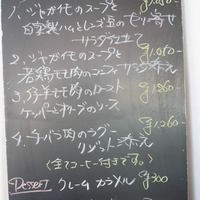 1, ジャガイモのスープと ¥1,050-
自家製ハムとレンズ豆のもり合せ
サラダ仕立て
2, ジャガイモのスープと ¥1,050-
若鶏モモ肉のコンフィ サラダ添え
3, 仔羊モモ肉のロースト ¥1,260-
ケッパーとオリーブのソース
4, 牛バラ肉のラグー ¥1,260-
リゾット添え
〈全てコーヒー付きです。〉
Dessert クレームカラメル ¥300